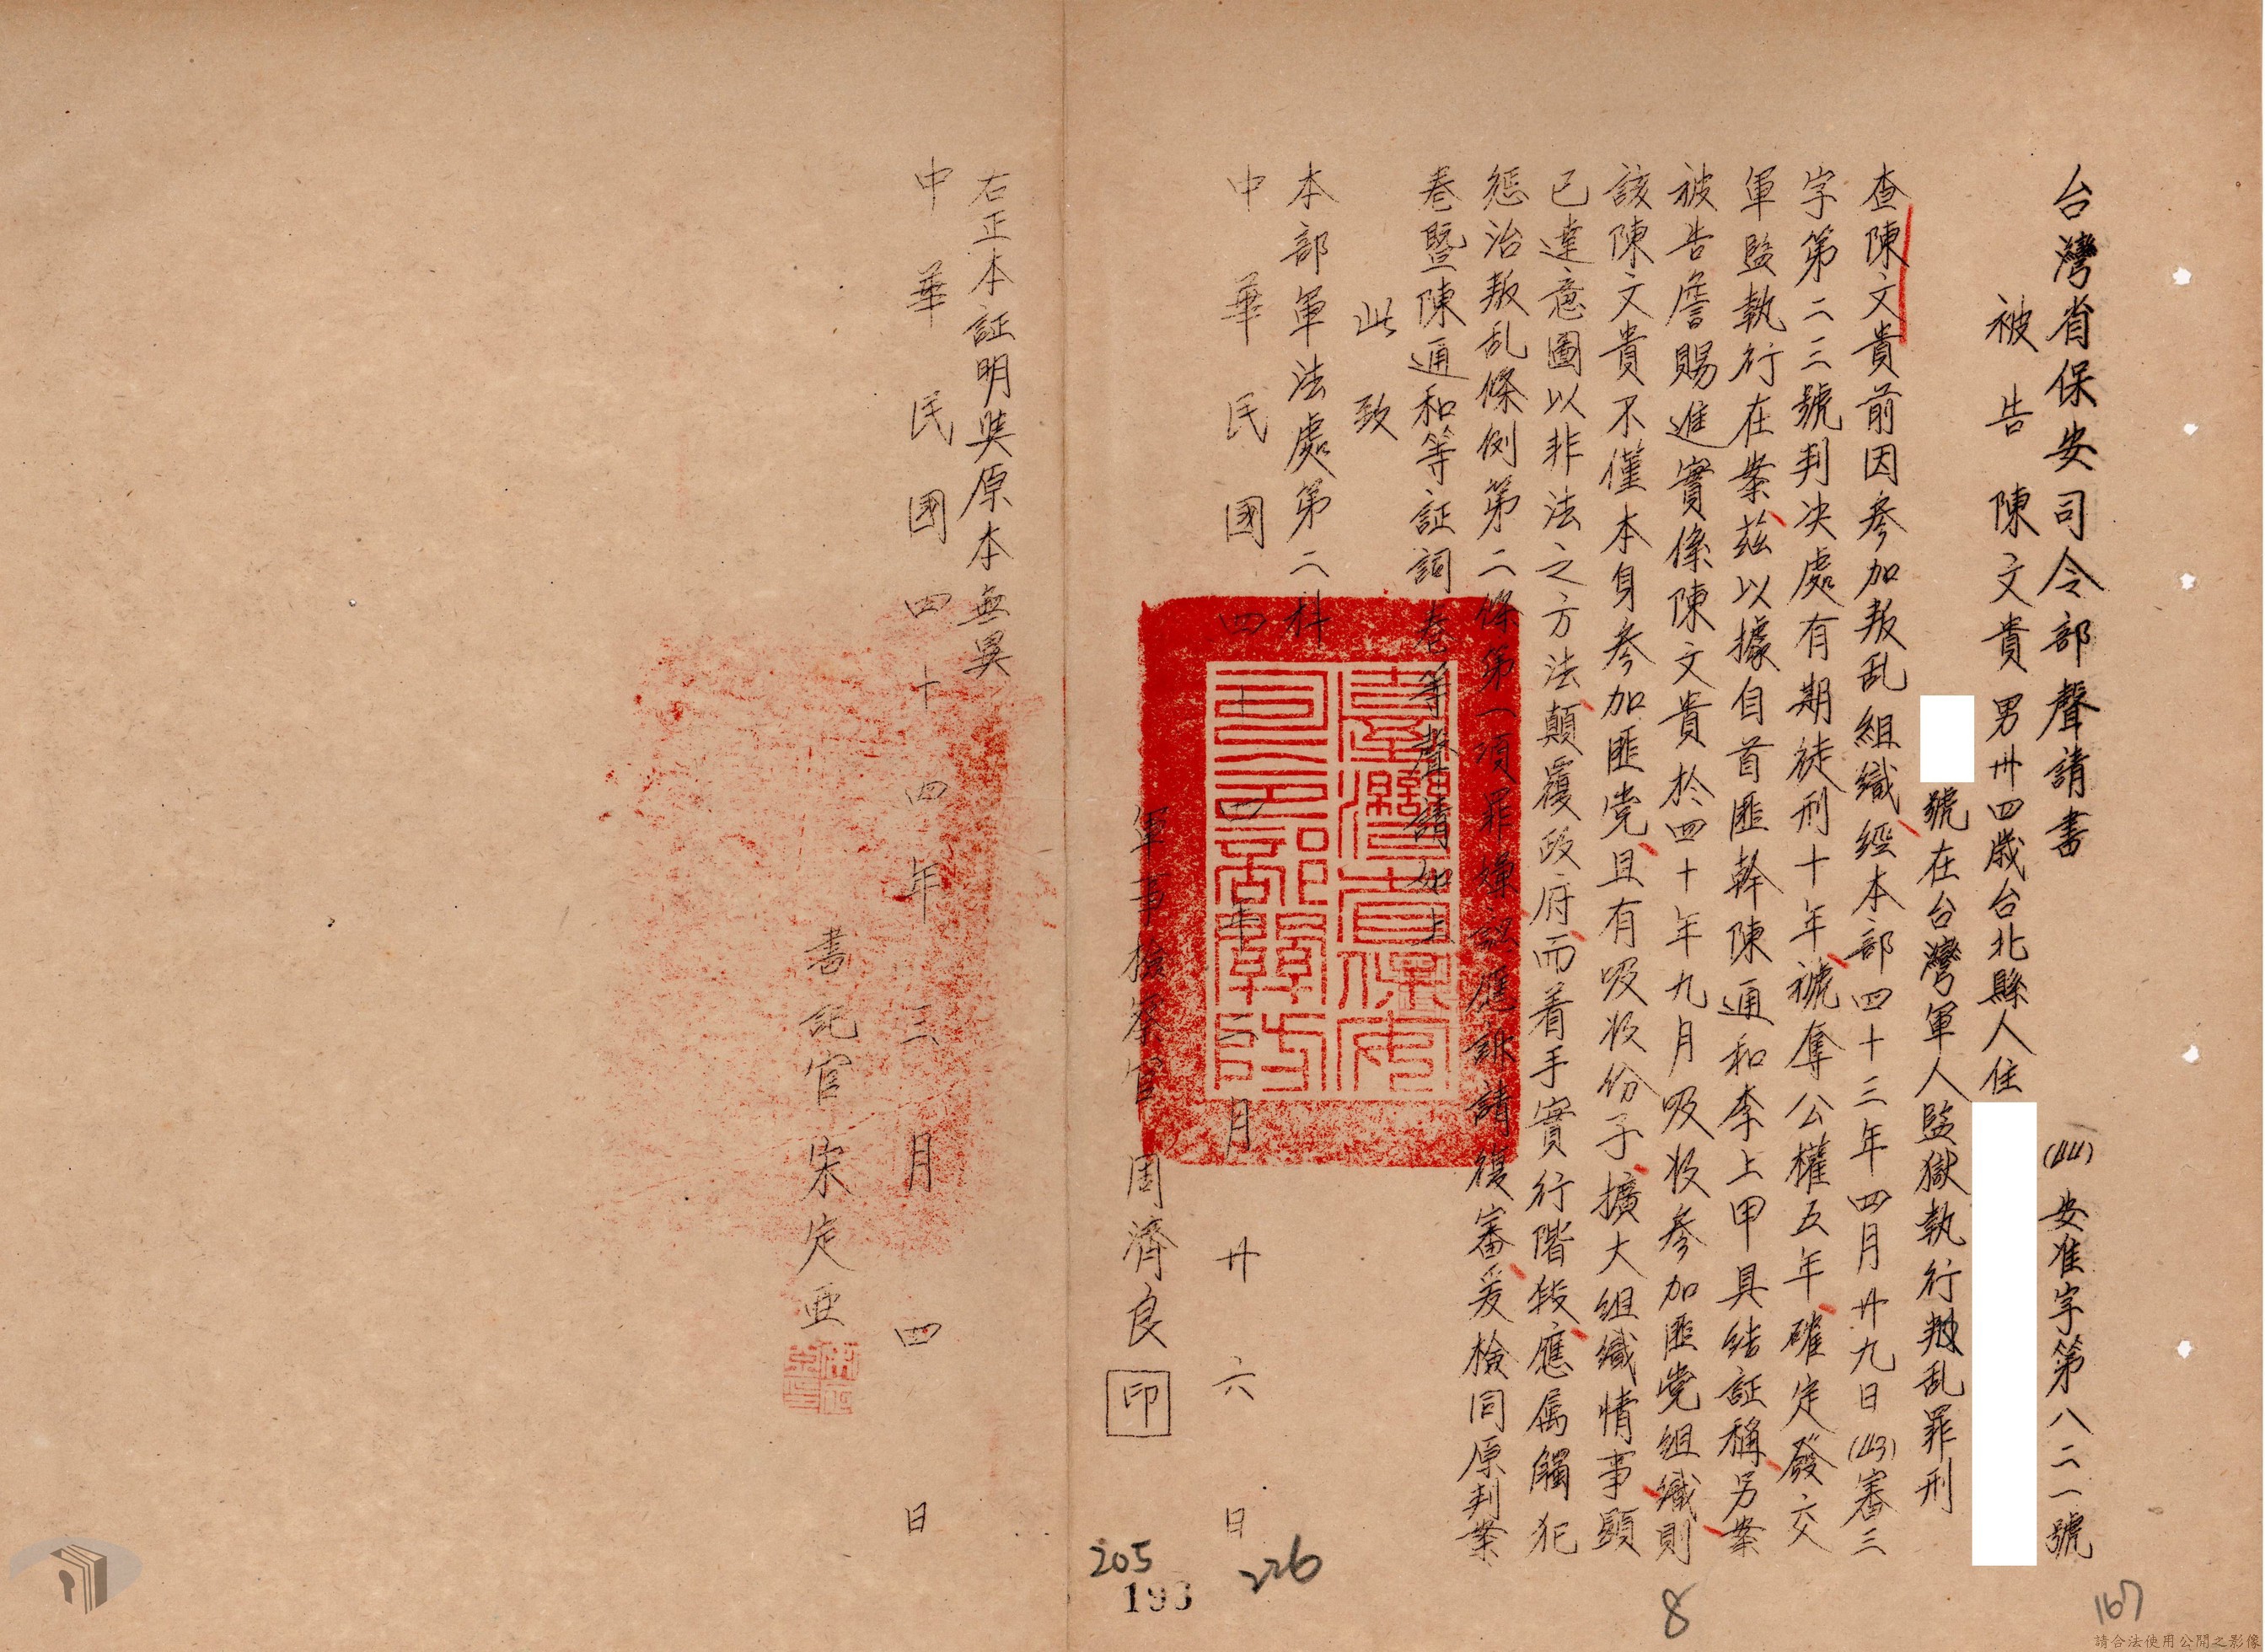 台灣省保安司令部聲請書
(44)安准字第八二一號
被告陳文貴男卅四歲台北縣人住
號在台灣軍人監獄執行叛乱罪刑
查陳文貴前因參加叛乱組織經本部四十三年四月廿九日(43)審三
字第二三號判决處有期徒刑十年褫奪公權五年確定發交
軍監執行在案茲以據自首匪幹陳通和李上甲具結証稱另案
被告詹賜進實係陳文貴於四十年九月吸收參加匪党組織則
該陳文貴不僅本身參加匪党且有吸收份子擴大組織情事顯
已達意圖以非法之方法顛覆政府而着手實行階段應属觸犯
惩治叛乱條例第二條第一項罪嫌認應訴請復審爰檢同原判案
卷暨陳通和等証詞卷等聲請如上
此致
本部軍法處第二科
中華民國四十四年二月廿六日
軍事檢察官周濟良
印
右正本証明與原本無異
中華民國四十四年三月四日
書記官宋定亜
臺灣省保安司令部關防
205
193
226
8
167
請合法使用公開之影像